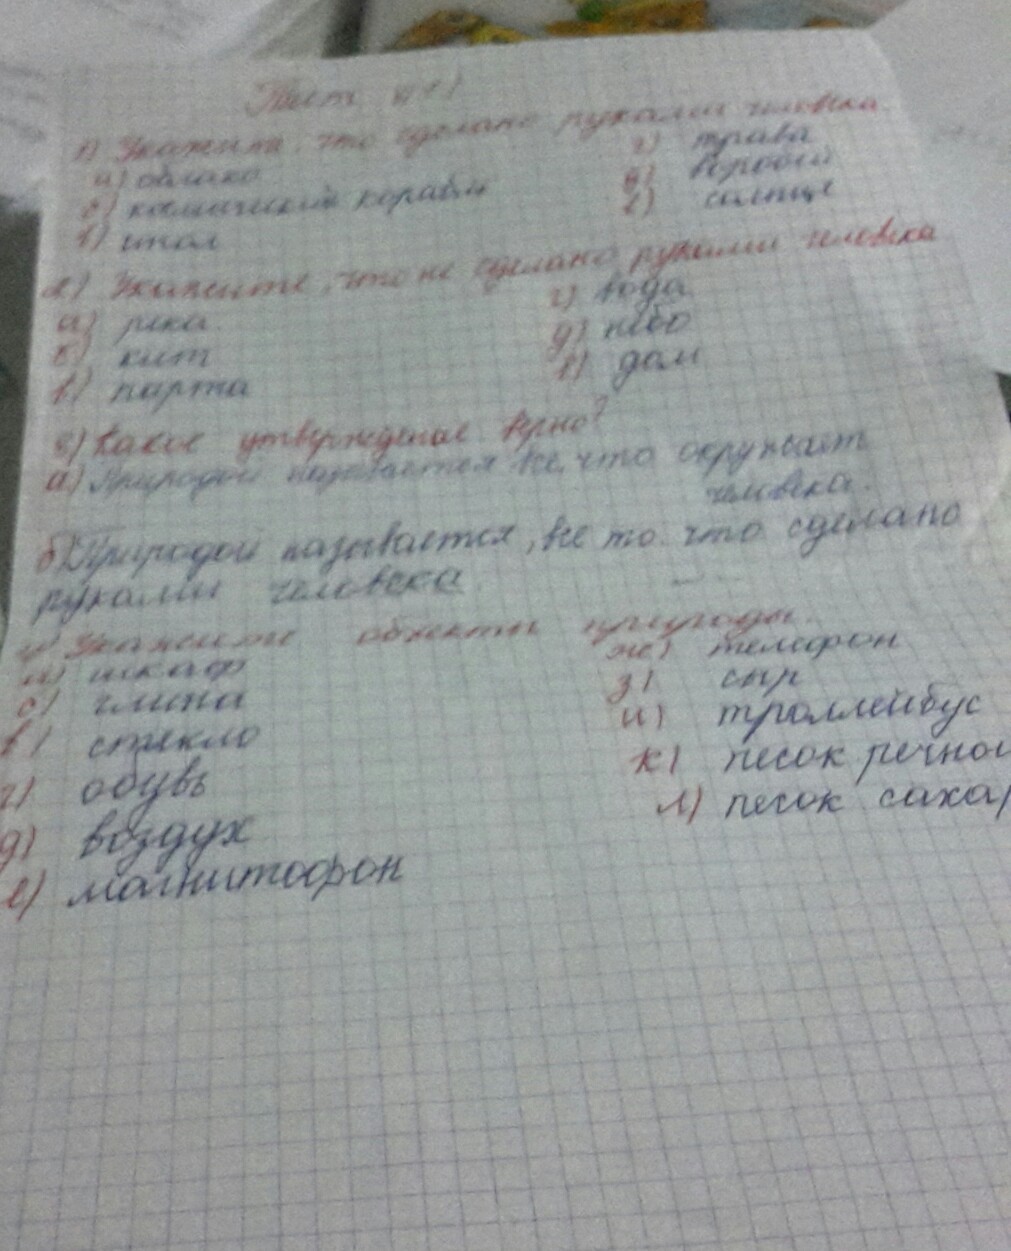 Тест №1
1) Укажите, что сделано руками человека
а) облако г) трава
б) космический корабль д) воробей
в) стол е) солнце
2) Укажите, что не сделано руками человека
а) река г) вода
б) кит д) небо
в) парта е) дом
3) Какое утверждение верно?
а) Природой называется все, что окружает
человека.
б) Природой называется, все то что сделано
руками человека
4) Укажите объекты природы.
а) шкаф ж) телефон
б) глина з) сыр
в) стекло и) троллейбус
г) обувь к) песок речной
д) воздух л) песок сахар
е) магнитофон